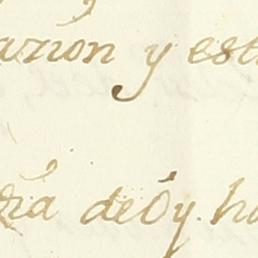 azion y est
ria de Oy. ha